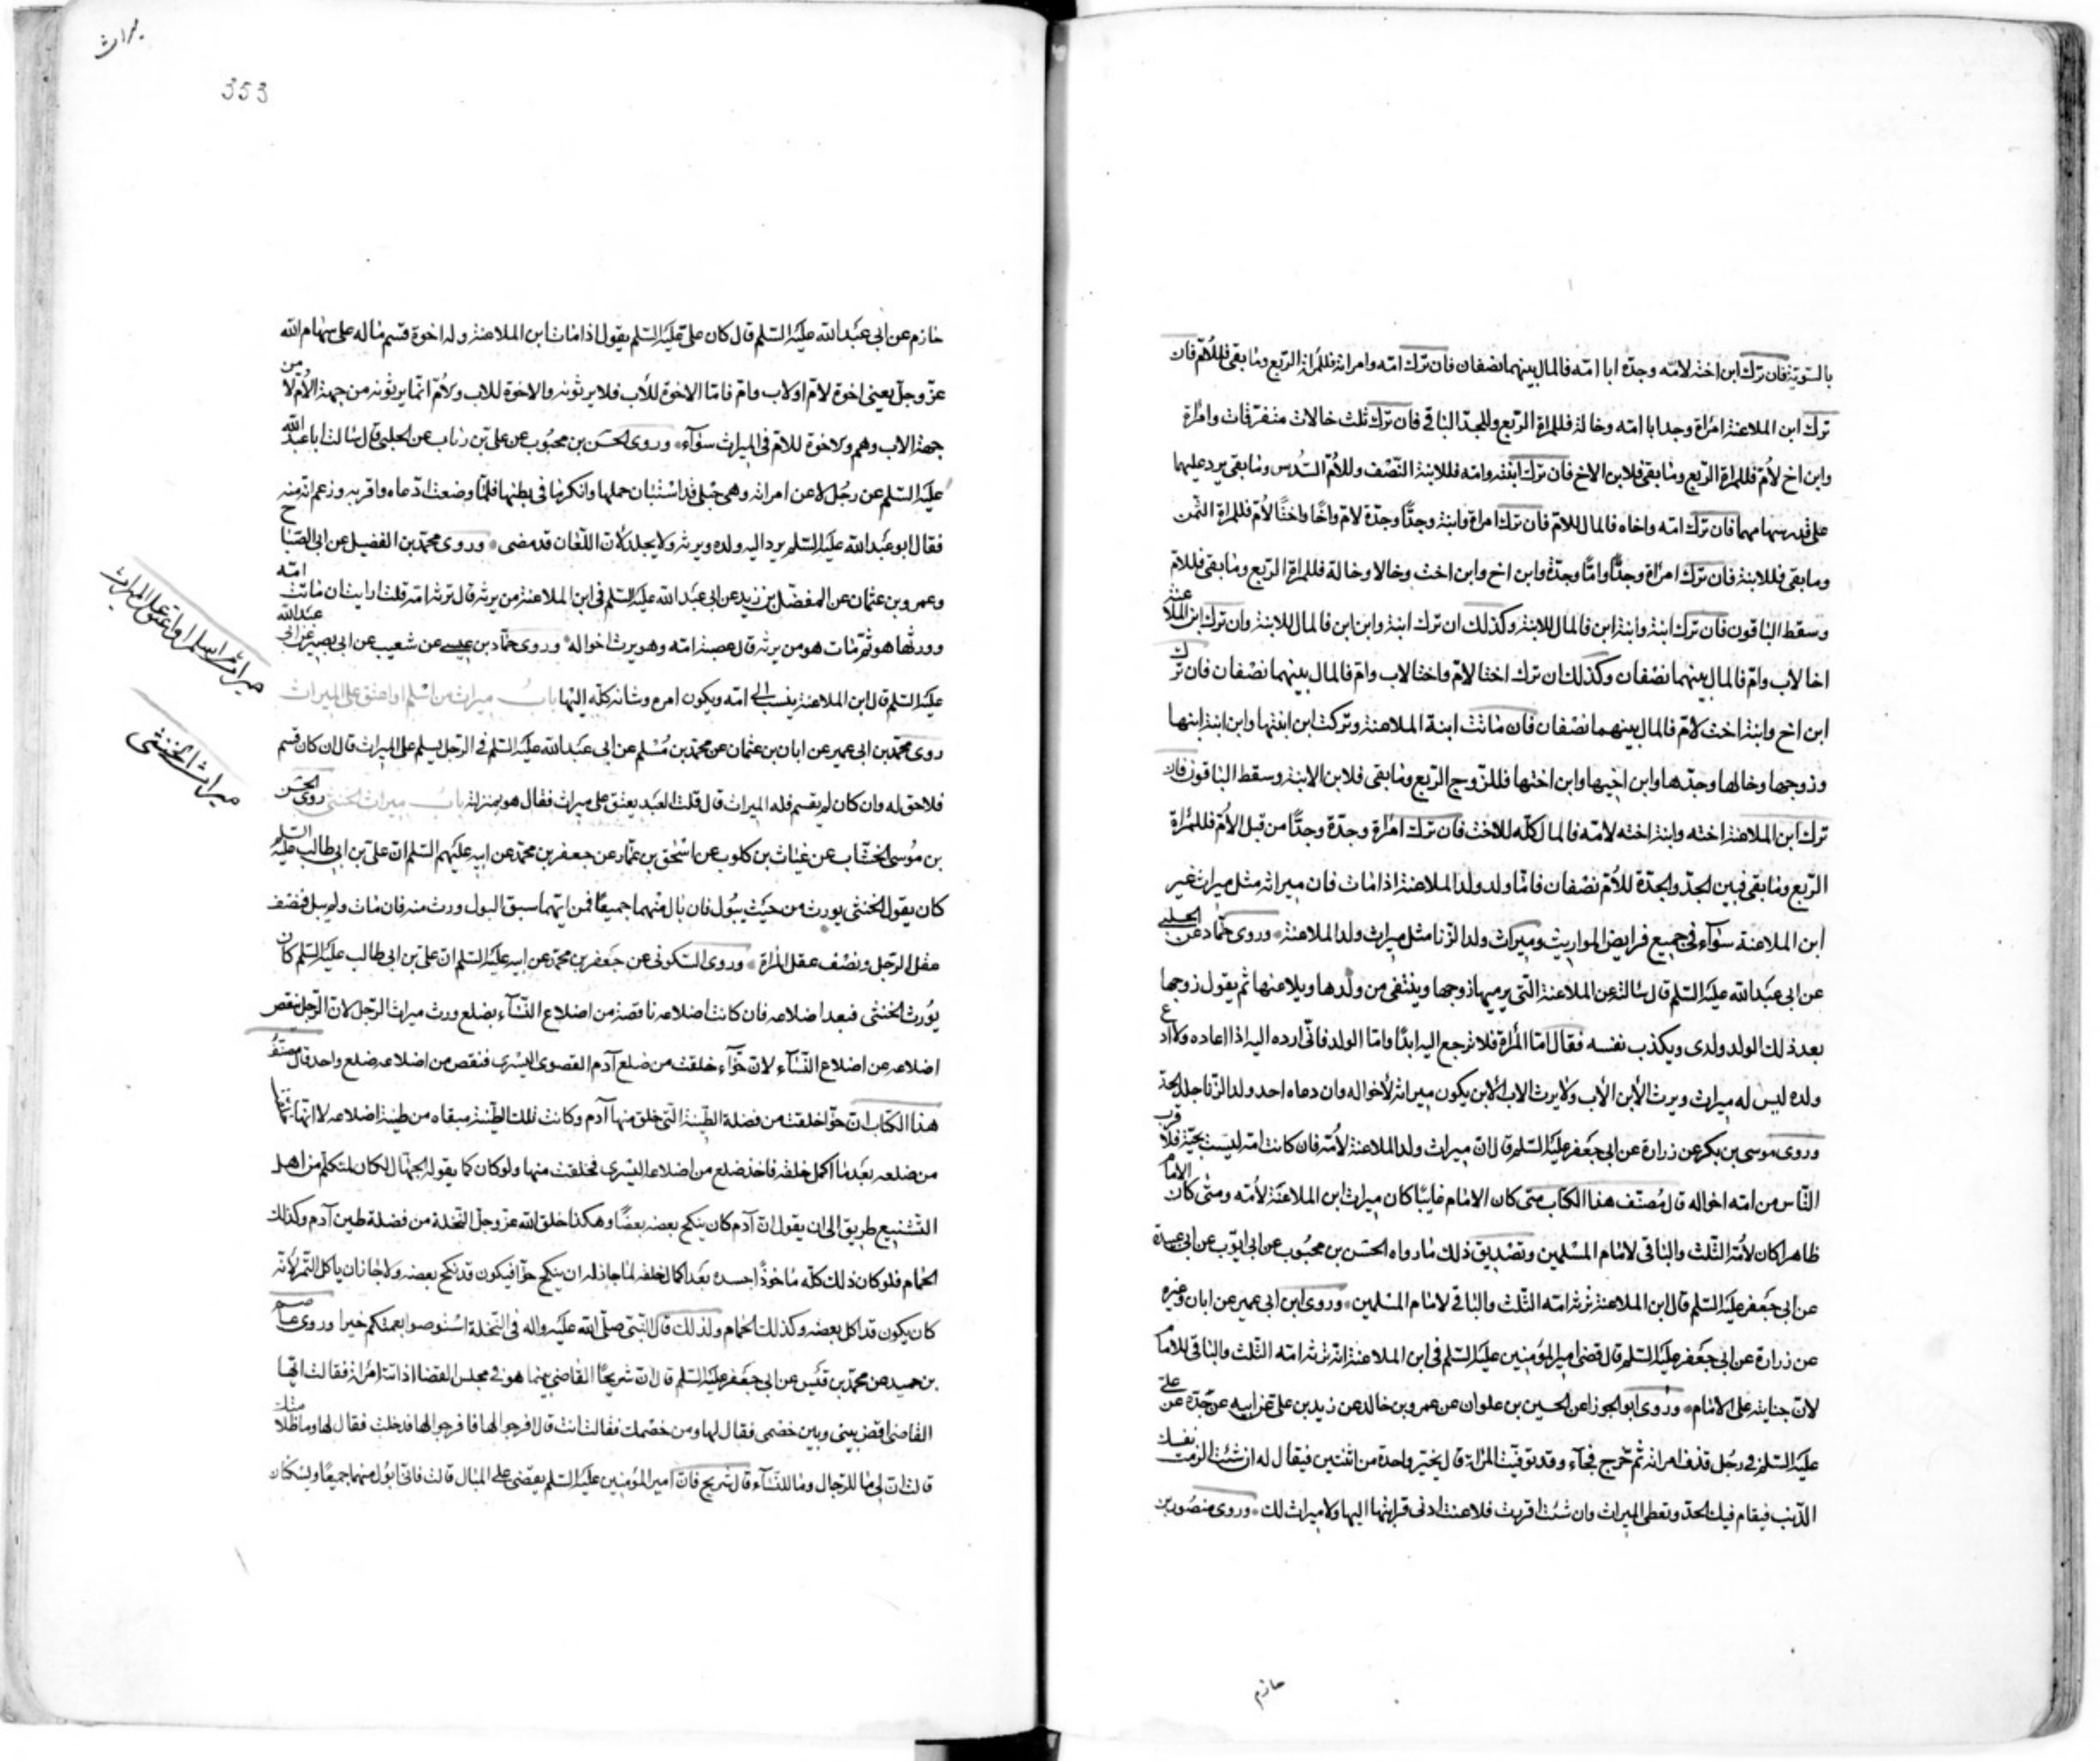 بالسّويّة فان ترك ابن اخته لامّه وجدّه ابا امّه فالمال بينهما نصفان فان ترك امّه وامراته فللمراة الرّبع وما بقى فللامّ فان
ترك ابن الملاعنة امراة وجدا ابا امّه وخالة فللمراة الرّبع وللجدّ الباقى فان ترك ثلث خالات متفرّقات وامراة
وابن اخ لامّ فللمراة الرّبع وما بقى فلابن الاخ فان ترك ابنته وامّه فللابنة النّصف وللامّ السّدس وما بقى يرد عليهما
على قدر سهامهما فان ترك امّه واخاه فالمال للامّ فان ترك امراة وابنة وجدّا وجدّة لامّ واخا واختا لامّ فللمراة الثّمن
وما بقى فللابنة فان ترك امراة وجدّا وامّا وجدّة وابن اخ وابن اخت وخالا وخالة فللمراة الرّبع وما بقى فللامّ
وسقط الباقون فان ترك ابنة وابنة ابن فالمال للابنة وكذلك ان ترك ابنة وابن ابن فالمال للابنة وان ترك ابن الملاعنة
اخا لاب وامّ فالمال بينهما نصفان وكذلك ان ترك اختا لامّ واختا لاب وامّ فالمال بينهما نصفان فان ترك
ابن اخ وابنة اخت لامّ فالمال بينهما نصفان فان ماتت ابنة الملاعنة وتركت ابن ابنتها وابن ابنة ابنها
وزوجها وخالها وجدّها وابن اخيها وابن اختها فللزّوج الرّبع وما بقى فلابن الابنة وسقط الباقون فان
ترك ابن الملاعنة اخته وابنة اخته لامّه فالمال كلّه للاخت فان ترك امراة وجدّة وجدّا من قبل الامّ فللمراة
الرّبع وما بقى فبين الجدّ والجدّة للامّ نصفان فامّا ولد ولد الملاعنة اذا مات فان ميراثه مثل ميراث غير
ابن الملاعنة سواء فى جميع فرايض المواريث وميراث ولد الزّنا مثل ميراث ولد الملاعنة وروى حمّاد عن الحلبى
عن ابى عبدالله عليه السّلم قال سالته عن الملاعنة التى يرميها زوجها وينتفى من ولدها ويلاعنها ثم يقول زوجها
بعد ذلك الولد ولدى ويكذب نفسه فقال امّا المراة فلا ترجع اليه ابدا وامّا الولد فانّى ارده اليه اذا ادعاه ولا ادع
ولده ليس له ميراث ويرث الابن الاب ولا يرث الاب الابن يكون ميراثه لاخواله وان دعاه احد ولد الزّنا جلد الحدّ
وروى موسى بن بكر عن زرارة عن ابى جعفر عليه السّلم قال ان ميراث ولد الملاعنة لامّه فان كانت امّه ليست بحيّة فلاقرب
النّاس من امّه اخواله قال مصنّف هذا الكتاب متى كان الامام غايبا كان ميراث ابن الملاعنة لامّه ومتى كان الامام
ظاهرا كان لامّه الثّلث والباقى لامام المسلمين وتصديق ذلك ما رواه الحسن بن محبوب عن ابى ايّوب عن ابى عبيدة
عن ابى جعفر عليه السّلم قال ابن الملاعنة ترثه امّه الثّلث والباقى لامام المسلمين وروى ابن ابى عمير عن ابان وغيره
عن زرارة عن ابى جعفر عليه السّلم قال قضى امير المؤمنين عليه السّلم فى ابن الملاعنة انّه ترثه امّه الثّلث والباقى للامام
لانّ جنايته على الامام وروى ابو الجوزا عن الحسين بن علوان عن عمرو بن خالد عن زيد بن على عن ابيه عن جدّه عن على
عليه السّلم فى رجل قذف امراته ثم خرج فجاء وقد توفّيت المراة قال يخيّر واحدة من اثنتين فيقال له ان شئت الزمت نفسك
الذّنب فيقام فيك الحدّ وتعطى الميراث وان شئت اقررت فلاعنت ادنى قرابتها اليها ولا ميراث لك وروى منصور بن
حازم
يراث
353
حازم عن ابى عبدالله عليه السّلم قال كان على عليه السّلم يقول اذا مات ابن الملاعنة وله اخوة قسّم ماله على سهام الله
عزّ وجلّ يعنى اخوة لامّ او لاب وامّ فامّا الاخوة للاب فلا يرثونه والاخوة للاب ولامّ انّما يرثونه من جهة الامّ لا من
جهة الاب وهم والاخوة للامّ فى الميراث سواء وروى الحسن بن محبوب عن على بن رئاب عن الحلبى قال سالت ابا عبدالله
عليه السّلم عن رجل لاعن امراته وهى حبلى قد استبان حملها وانكر ما فى بطنها فلمّا وضعت ادّعاه واقربه وزعم انّه منه
فقال ابو عبدالله عليه السّلم يرد اليه ولده ويرثه ولا يجلد لانّ اللّعان قد مضى وروى محمّد بن الفضيل عن ابى الصّباح
وعمرو بن عثمان عن المفضّل بن زيد عن ابى عبدالله عليه السّلم فى ابن الملاعنة من يرثه قال ترثه امّه قلت ارايت ان ماتت امّه
وورثها هو ثمّ مات هو من يرثه قال عصبة امّه وهو يرث اخواله وروى حمّاد بن عيسى عن شعيب عن ابى بصير عن ابى عبدالله
عليه السّلم قال ابن الملاعنة ينسب الى امّه ويكون امره وشانه كلّه اليها باب ميراث من اسلم او اعتق على الميراث
روى محمّد بن ابى عمير عن ابان بن عثمان عن محمّد بن مسلم عن ابى عبدالله عليه السّلم فى الرّجل يسلم على الميراث قال ان كان قسم
فلا حق له وان كان لم يقسم فله الميراث قال قلت العبد يعتق على ميراث فقال هو بمنزلته باب ميراث الخنثى روى الحسن
بن موسى الخشّاب عن غياث بن كلوب عن اسحق بن عمّار عن جعفر بن محمّد عن ابيه عليهم السّلم انّ على بن ابى طالب عليه السلم
كان يقول الخنثى يورث من حيث يبول فان بال منهما جميعا فمن ايّهما سبق البول ورث منه فان مات ولم يبل فنصف
عقل الرّجل ونصف عقل المراة وروى السّكونى عن جعفر بن محمّد عن ابيه عليه السّلم ان على بن ابى طالب عليه السّلم كان
يورث الخنثى فيعد اضلاعه فان كانت اضلاعه ناقصة من اضلاع النّساء بضلع ورث ميراث الرّجل لانّ الرّجل ينقص
اضلاعه عن اضلاع النّساء لانّ حوّاء خلقت من ضلع آدم القصوى اليسرى فنقص من اضلاعه ضلع واحد قال مصنّف
هذا الكتاب انّ حوّا خلقت من فضلة الطّينة الّتى خلق منها آدم وكانت تلك الطّينة مبقاه من طينة اضلاعه لا انّها خلقت
من ضلعه بعد ما اكمل خلقه فاخذ ضلع من اضلاعه اليسرى فخلقت منها ولو كان كما يقوله الجهّال لكان لمتكلّم من اهل
التّشنيع طريق الى ان يقول انّ آدم كان ينكح بعضه بعضا وهكذا خلق الله عزّ وجلّ النّخلة من فضلة طين آدم وكذلك
الحمام فلو كان ذلك كلّه ماخوذا جسده بعد اكمال خلقه لما جاز له ان ينكح حوّا فيكون قد نكح بعضه ولا جاز ان ياكل التّمر لانّه
كان يكون قد اكل بعضه وكذلك الحمام ولذلك قال النّبى صلّى الله عليه واله فى النّخلة استوصوا بعمتكم خيرا وروى عاصم
بن حميد عن محمّد بن قيس عن ابى جعفر عليه السّلم قال انّ شريحا القاضى بينما هو فى مجلس القضا اذ اتته امراة فقالت ايّها
القاضى اقض بينى وبين خصمى فقال لها ومن خصمك فقالت انت قال افرجوا لها فافرجوا لها فدخلت فقال لها وما ظلامتك
قالت انّ لى ما للرّجال وما للنّساء قال شريح فانّ امير المؤمنين عليه السّلم يقضى على المبال قالت فانّى ابول منهما جميعا ويسكنان
ميراث من اسلم او اعتق على الميراث
ميراث الخنثى